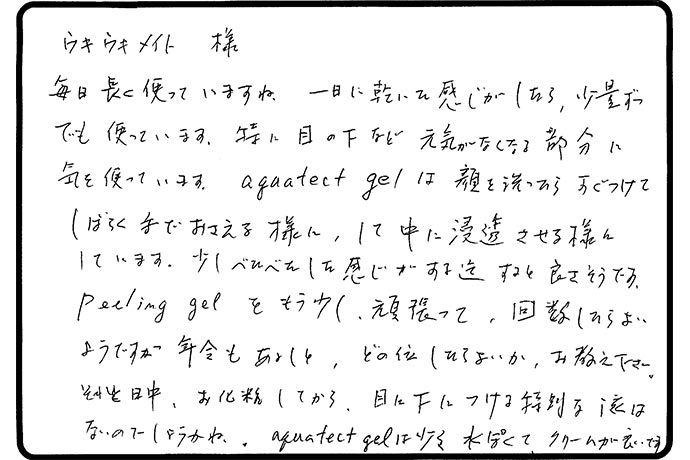 ウキウキメイト 様
毎日長く使っていますね。一日に乾いた感じがしたら、少量ずつ
でも使っています。特に目の下など元気がなくなる部分に
気を使っています。aquatect gelは顔を洗ったらすぐつけて
しばらく手でおさえる様に、して中に浸透させる様に
しています。少しべたべたした感じがする迄すると良さそうです。
peeling gelをもう少し、頑張って、回数したらよい
ようですが年令もあるしと、どの位したらよいか、お教え下さい。
それと日中、お化粧してから、目に下につける特別な液は
ないのでしょうかね。aquatect gelは少々水ぽくて、クリームが良いです